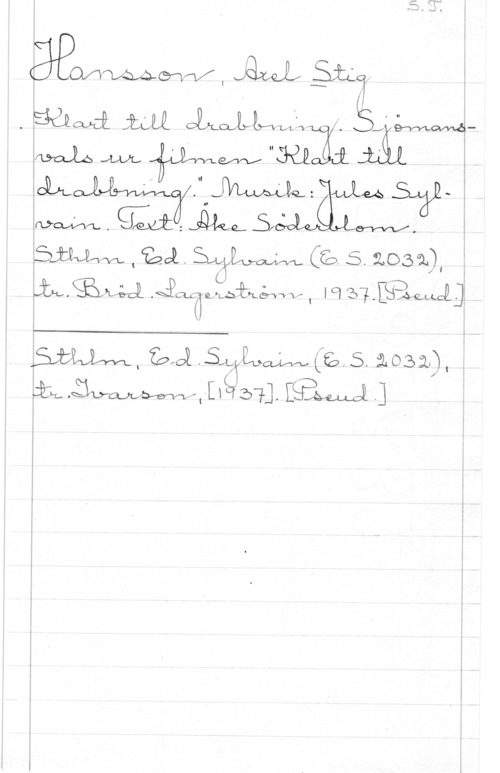 S.T.
Hansson, Axel Stig
Klart till drabbning. Sjömans-
vals ur filmen "Klart till
drabbning." Musik: Jules Syl-
vain. Text: Åke Söderblom.
Sthlm, Ed. Sylvain (E. S. 2032),
tr. Bröd. Lagerström, 1937. [Pseud.]
Sthlm, Ed. Sylvain (E. S. 2032),
tr. Ivarson, [1937]. [Pseud.]